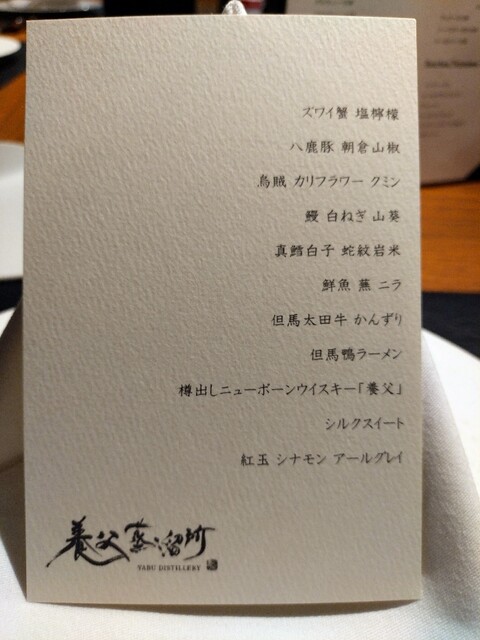 ズワイ蟹 塩檸檬
八鹿豚 朝倉山椒
烏賊 カリフラワー クミン
鰻 白ねぎ 山葵
真鱈白子 蛇紋岩米
鮮魚 蕪 ニラ
但馬太田牛 かんずり
但馬鴨ラーメン
樽出しニューボーンウイスキー「養父」
シルクスイート
紅玉 シナモン アールグレイ
養父蒸溜所
YABU DISTILLERY